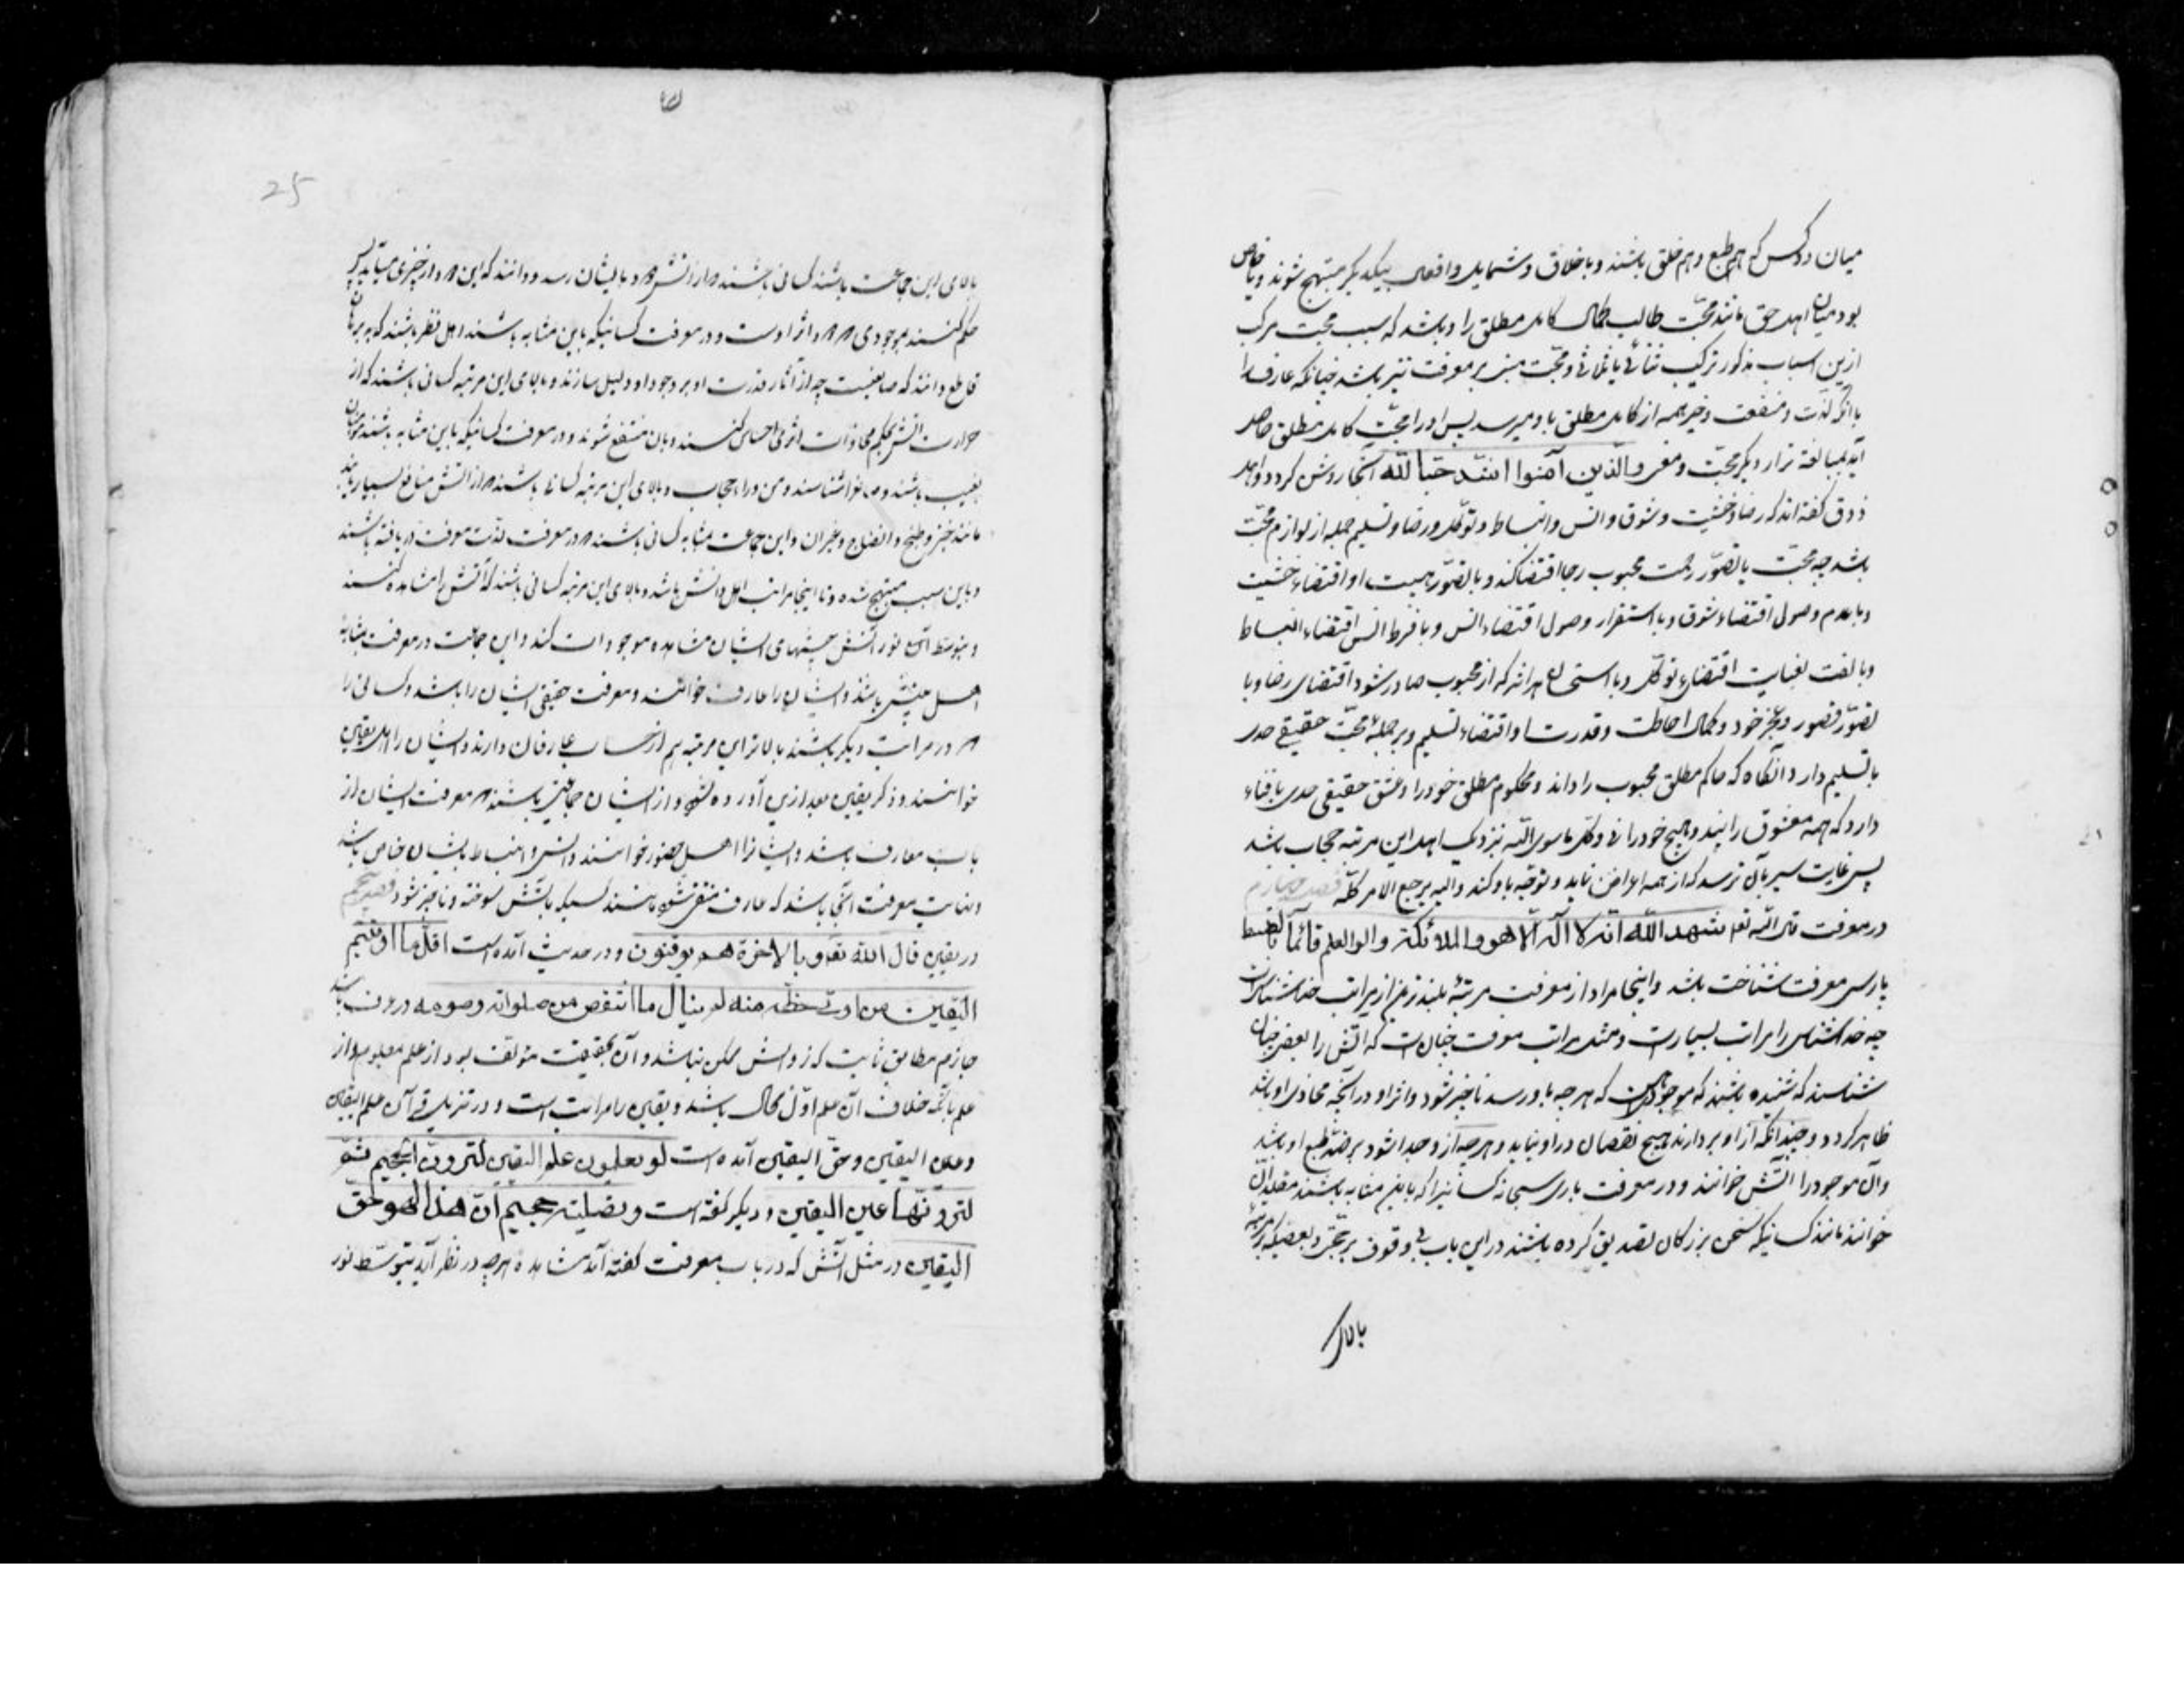 میان دو کس که هم طبع و هم خلق باشند و باخلاق و شمایل و افعال یکدیگر مبتهج شوند و یا خاص
بود میان اهل حق مانند محبّت طالب کمال کامل مطلق را و باشد که سبب محبت مرکب
ازین اسباب مذکور ترکیب ثنائی یا ثلاثی و محبّت مبنی بر معرفت نیز باشد چنانکه عارف را
با آنکه لذّت و منفعت و خیر همه از کامل مطلق باو میرسد پس او را محبّت کامل مطلق حاصل
آید بمبالغه تر از دیگر محبّت و معنی والّذین آمنوا اشدّ حبّا للّه آنجا روشن گردد و اهل
ذوق گفته‌اند که رضا و خشیت و شوق و انس و انبساط و توکّل و رضا و تسلیم جمله از لوازم محبّت
باشد چه محبّت با تصوّر رحمت محبوب رجا اقتضا کند و با تصوّر هیبت او اقتضاء خشیت
و با عدم وصول اقتضاء شوق و با استقرار وصول اقتضاء انس و با فرط انس اقتضاء انبساط
و با ثقت بعنایت اقتضای توکّل و با استحسان هر اثر که از محبوب صادر شود اقتضای رضا و با
تصوّر قصور و عجز خود و کمال احاطت و قدرت او اقتضاء تسلیم و بر جمله محبّت حقیقی حدی
با تسلیم دارد آنگاه که حاکم مطلق محبوب را داند و محکوم مطلق خود را و عشق حقیقی حدی با فناء
دارد که همه معشوق را بیند و هیچ خود را نه و کلّ ماسوی اللّه نزدیک اهل این مرتبه حجاب باشد
پس غایت سیر بآن ترسد که از همه اعراض نماید و توجّه باو کند و الیه یرجع الامر کلّه فصل چهارم
در معرفت قال اللّه تع شهد اللّه انّه لا اله الّا هو و الملائکة و اولوا العلم قائما بالقسط
پارسی معرفت شناخت باشد و اینجا مراد از معرفت مرتبهٔ بلندترین از مراتب خداشناسیست
چه خداشناسی را مراتب بسیارست و مثل مراتب معرفت چنان است که آتش را بعضی چنان
شناسند که شنیده باشند که موجودیست که هرچه باو رسد ناچیز شود و اثر او در آنچه محاذی او باشد
ظاهر گردد و چندانکه از او بردارند هیچ نقصان در او نیاید و هرچه ازو جدا شود بر ضدّ طبع او باشد
و آن موجود را آتش خوانند و در معرفت باری سبحانه کسانیرا که باین مثابه باشند مقلّدان
خوانند مانند کسانیکه سخن بزرگان تصدیق کرده باشند دراین باب بی وقوف بر حجّت و بعضیکه بمرتبهٔ
بالای
25
بالای این جماعت باشند کسانی باشند که از آتش دود بایشان رسد و دانند که این دود از چیزی میآید پس
حکم کنند بموجودی که دود اثر اوست و در معرفت کسانیکه باین مثابه باشند اهل نظر باشند که به برهان
قاطع دانند که صانعیست چه از آثار قدرت او بر وجود او دلیل سازند و بالای این مرتبه کسانی باشند که از
حرارت آتش بحکم مجاورت اثری احساس کنند و بآن منتفع شوند و در معرفت کسانیکه باین مثابه باشند مؤمنان
بغیب باشند و صانع را شناسند من وراء حجاب و بالای این مرتبه کسانی باشند که از آتش منافع بسیار یابند
مانند خبز و طبخ و انضاج و غیر آن و این جماعت بمثابه کسانی باشند که در معرفت لذّت معرفت دریافته باشند
و باین سبب مبتهج شده و تا اینجا مراتب اهل دانش باشد و بالای این مرتبه کسانی باشند که آتش را مشاهده کنند
و بتوسّط آن نور آتش چشمهای ایشان مشاهده موجودات کند و این جماعت در معرفت بمثابهٔ
اهل بینش باشند و ایشان را عارف خوانند و معرفت حقیقی ایشان را باشد و کسانی را
که در مراتب دیگر باشند بالاتر این مرتبه هم از حساب عارفان دارند و ایشان را اهل یقین
خوانند و ذکر یقین بعد ازین آورده شود و از ایشان جماعتی باشند که معرفت ایشان از
باب معاینه باشد و ایشانرا اهل حضور خوانند و انس و انبساط بایشان خاص باشد
و نهایت معرفت آنجا باشد که عارف منتفی شود مانند کسیکه بآتش سوخته و ناچیز شود فصل پنجم
در یقین قال اللّه تع و بالآخرة هم یوقنون و در حدیث آمده است اقلّ ما اوتیتم
الیقین و من اوتی حظّه منه لم یبال ما انتقص من صلواته و صومه در عرف باشد
جازم مطابق ثابت که زوالش ممکن نباشد و آن بحقیقت مؤلّف بود از علم معلوم و از
علم بآنکه خلاف آن علم اوّل محال باشد و یقین را مراتب است و در تنزیل قرآن علم الیقین
و عین الیقین و حقّ الیقین آمده است لو تعلمون علم الیقین لترونّ الجحیم ثمّ
لترونّها عین الیقین و دیگر گفته است و تصلیة جحیم انّ هذا لهو حقّ
الیقین در مثل آتش که در باب معرفت گفته آمد مشاهده هرچه در نظر آید بتوسّط نور